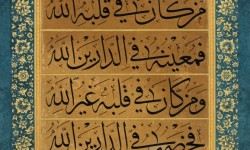 من كان في قلبه الله
فمعينه في الدارين الله
ومن كان في قلبه غير الله
فخصمه في الدارين الله